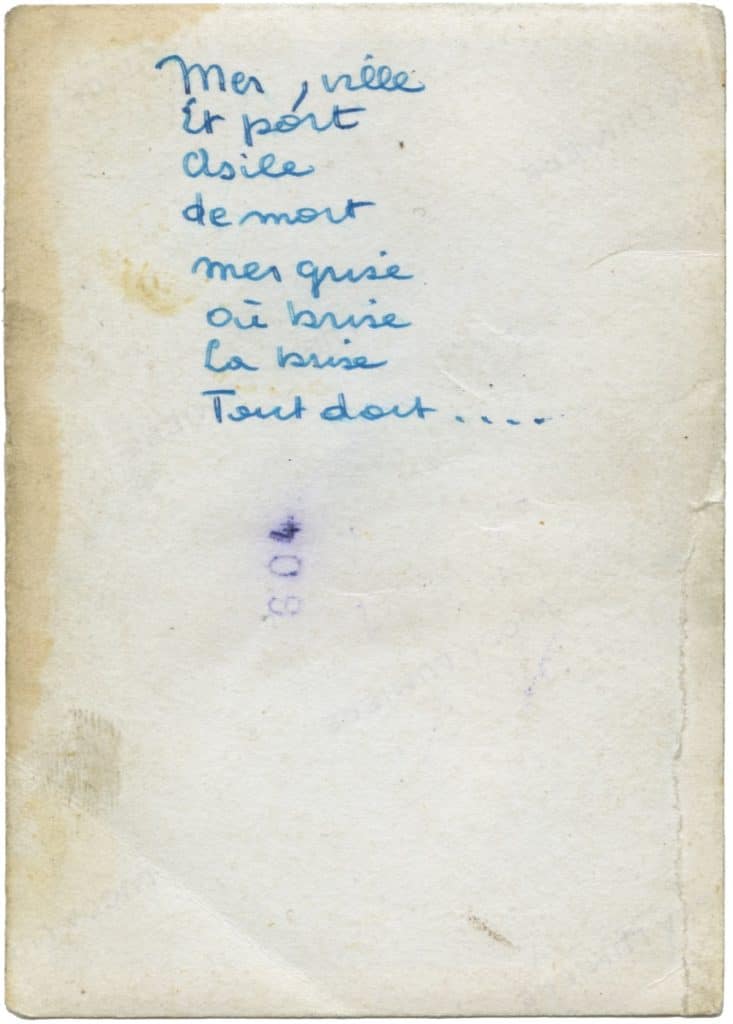 Mer, ville
Et port
Asile
de mort
mer grise
où brise
La brise
Tout dort....
604